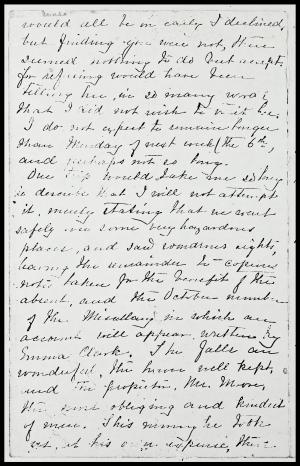 would all be in early I declined,
but finding you were not, there
seemed nothing to do but accept,
for refusing would have been
telling her, in so many words
that I did not wish to visit her.
I do not expect to remain longer
than Monday of next week (the 6th),
and perhaps not so long.
Our trip would take me so long
to describe that I will not attempt
it, merely stating that we went
safely over some very hazardous
places, and saw wondrous sights,
leaving the remainder to copious
notes taken for the benefit of the
absent, and the October number
of the Miscellany in which an
account will appear written by
Emma Clark. The Falls are
wonderful, the house well kept,
and the proprietor, Mr. Moore,
the most obliging and kindest
of men. This morning he took
us, at his own expense, then